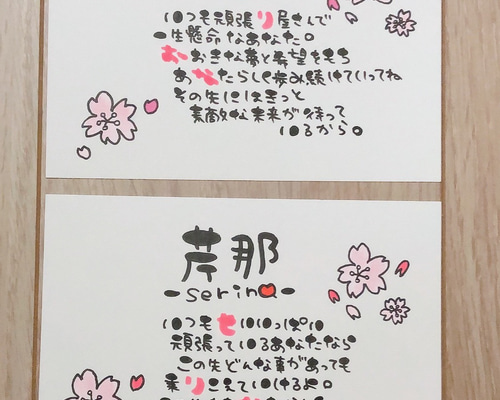 いつも頑張り屋さんで
一生懸命なあなた。
おおきな夢と希望をもち
あなたらしく歩み続けていってね
その先にはきっと
素敵な未来が待って
いるから。
芹那
-serina-
いつもせいいっぱい
頑張っているあなたなら
この先どんな事があっても
乗りこえていけるよ。